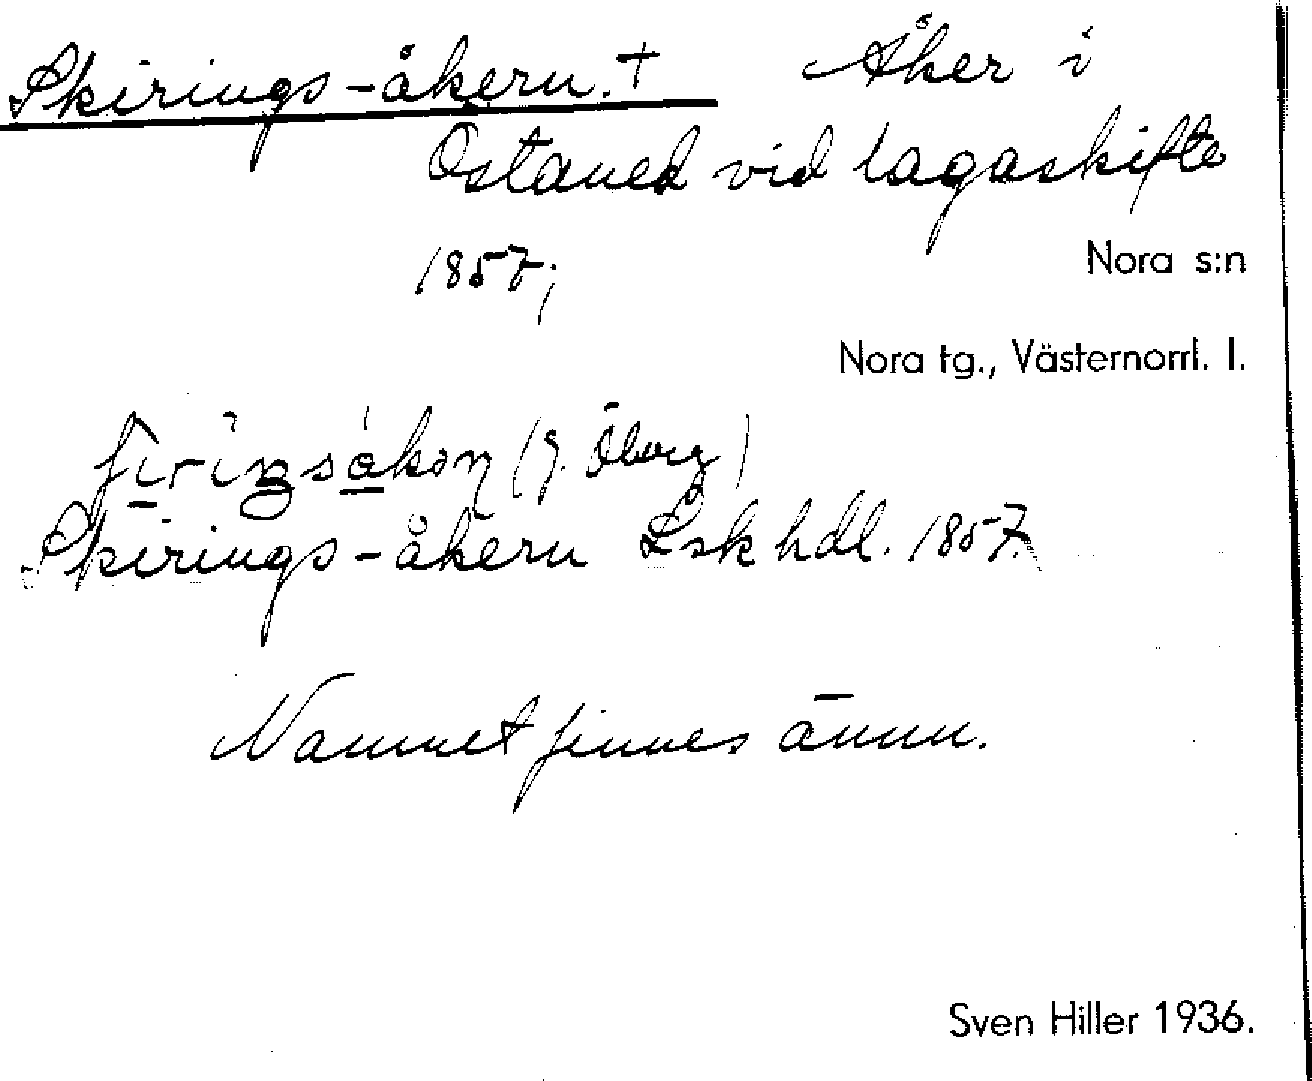 Skirings-åkern. + Åker i
Östaned vid lagaskifte
1857;
Nora s:n
Nora tg., Västernorrl. l.
(J. Öberg)
Skirings-åkern Lsk hdl. 1857.
Namnet finnes ännu.
Sven Hiller 1936.